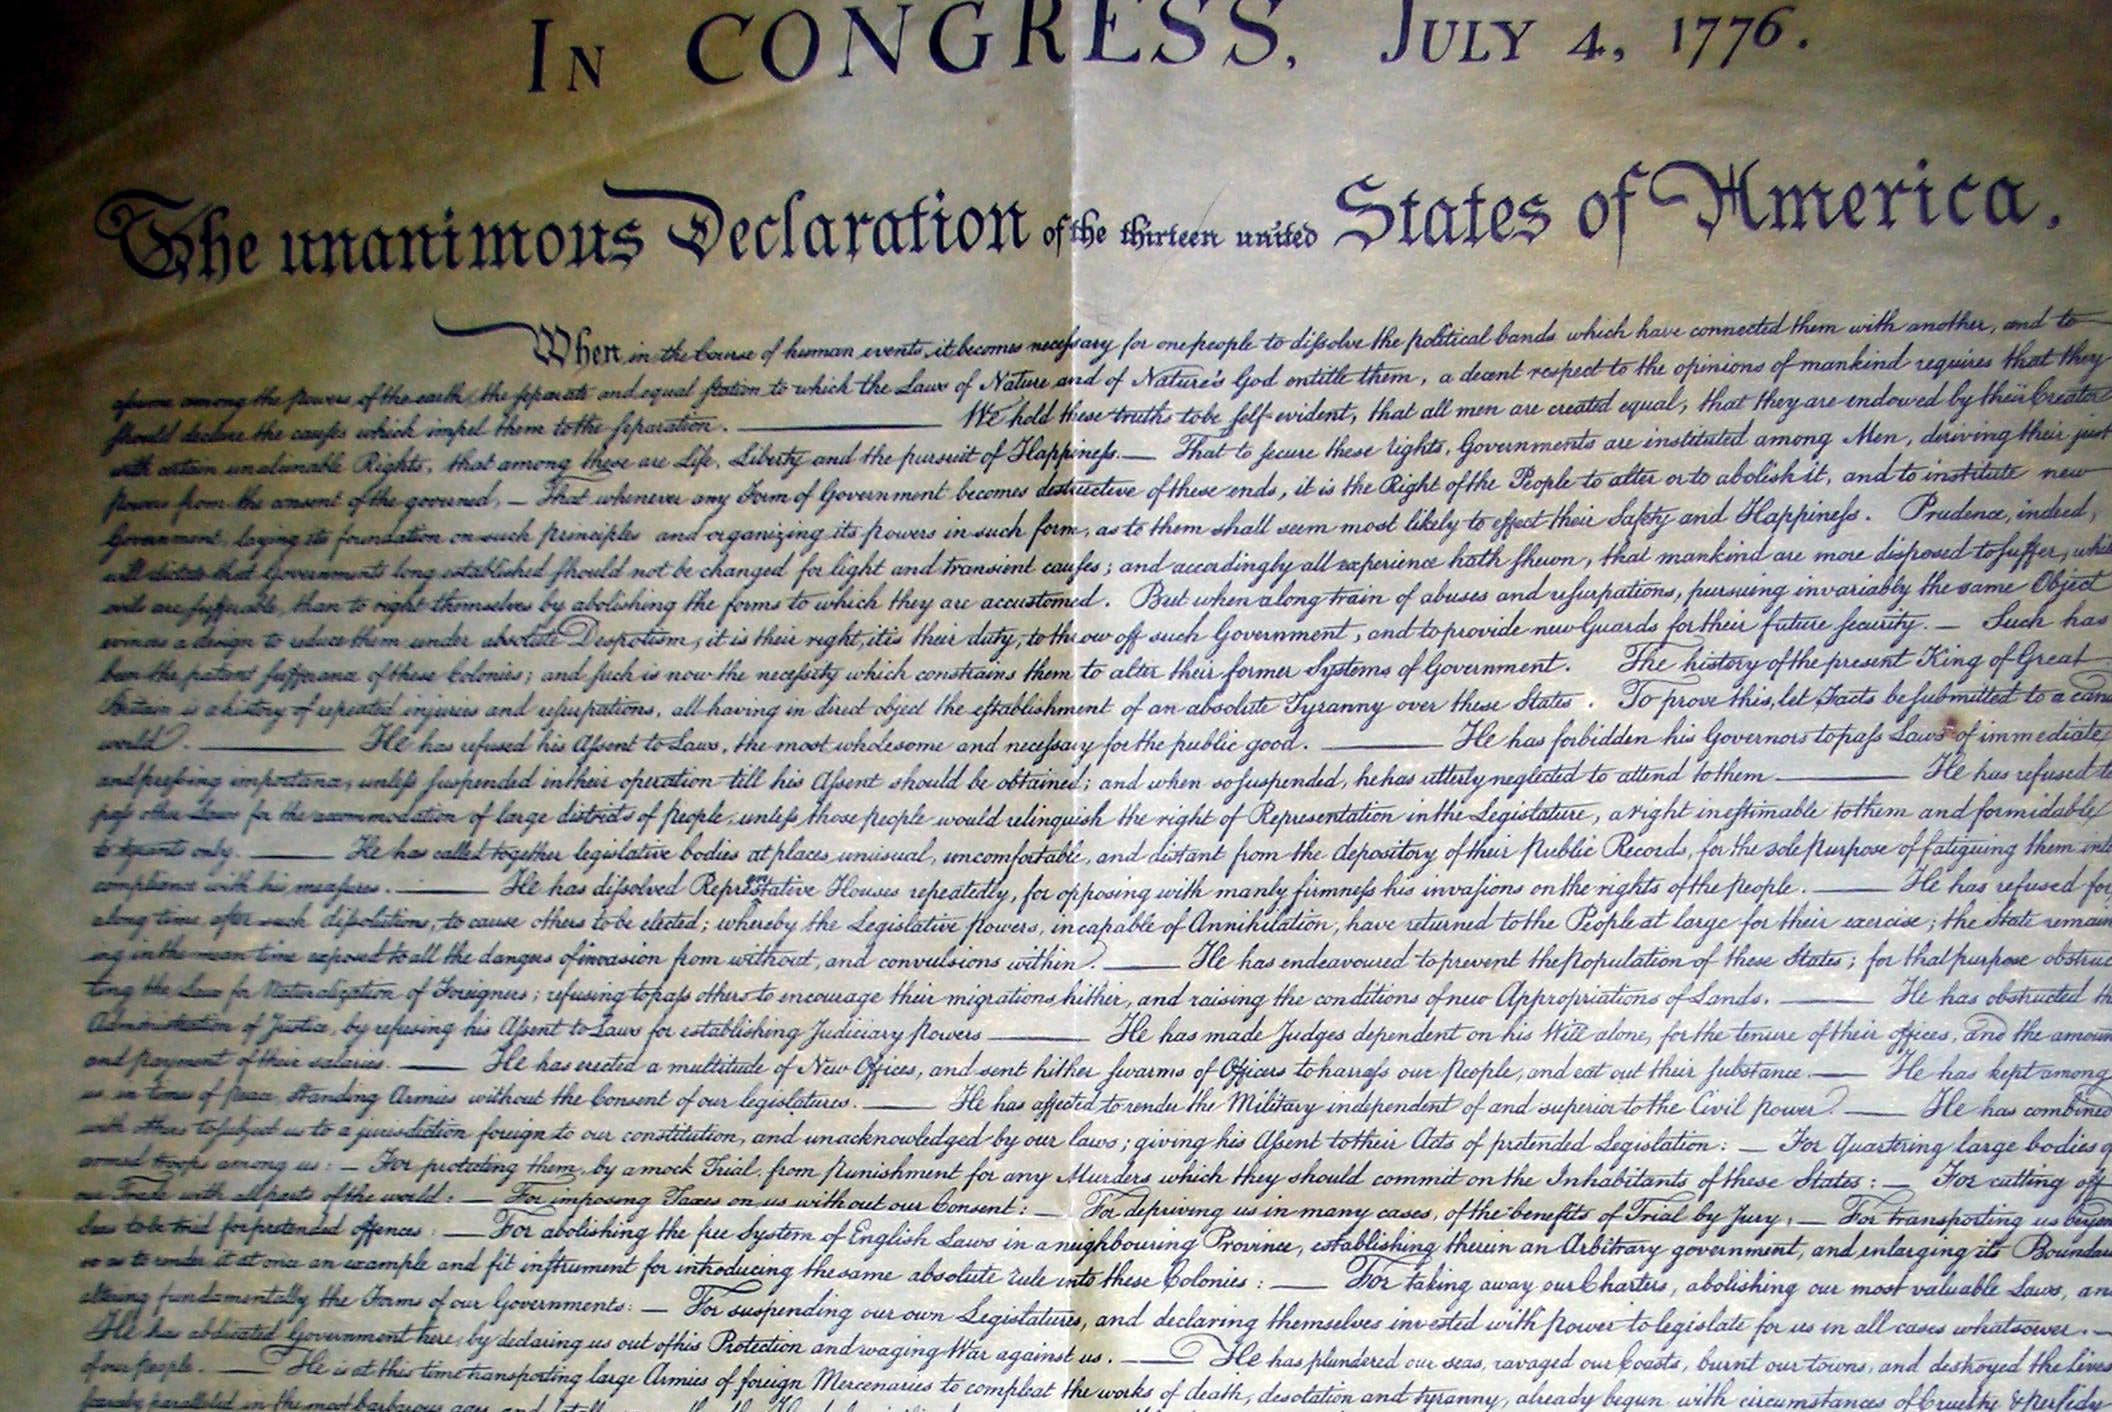 IN CONGRESS, JULY 4, 1776.
The unanimous Declaration of the thirteen united States of America.
When in the Course of human events, it becomes necessary for one people to dissolve the political bands which have connected them with another, and to
assume among the powers of the earth, the separate and equal station to which the Laws of Nature and of Nature's God entitle them, a decent respect to the opinions of mankind requires that they
should declare the causes which impel them to the separation. ——— We hold these truths to be self-evident, that all men are created equal, that they are endowed by their Creator
with certain unalienable Rights, that among these are Life, Liberty and the pursuit of Happiness.— That to secure these rights, Governments are instituted among Men, deriving their just
powers from the consent of the governed, — That whenever any Form of Government becomes destructive of these ends, it is the Right of the People to alter or to abolish it, and to institute new
Government, laying its foundation on such principles and organizing its powers in such form, as to them shall seem most likely to effect their Safety and Happiness. Prudence, indeed,
will dictate that Governments long established should not be changed for light and transient causes; and accordingly all experience hath shewn, that mankind are more disposed to suffer, while
evils are sufferable, than to right themselves by abolishing the forms to which they are accustomed. But when a long train of abuses and usurpations, pursuing invariably the same Object
evinces a design to reduce them under absolute Despotism, it is their right, it is their duty, to throw off such Government, and to provide new Guards for their future security. — Such has
been the patient sufferance of these Colonies; and such is now the necessity which constrains them to alter their former Systems of Government. The history of the present King of Great
Britain is a history of repeated injuries and usurpations, all having in direct object the establishment of an absolute Tyranny over these States. To prove this, let Facts be submitted to a cand
world. ——— He has refused his Assent to Laws, the most wholesome and necessary for the public good. ——— He has forbidden his Governors to pass Laws of immediate
and pressing importance, unless suspended in their operation till his Assent should be obtained; and when so suspended, he has utterly neglected to attend to them ——— He has refused to
pass other Laws for the accommodation of large districts of people, unless those people would relinquish the right of Representation in the Legislature, a right inestimable to them and formidable
to tyrants only. ——— He has called together legislative bodies at places unusual, uncomfortable, and distant from the depository of their Public Records, for the sole purpose of fatiguing them into
compliance with his measures. ——— He has dissolved Representative Houses repeatedly, for opposing with manly firmness his invasions on the rights of the people. ——— He has refused for
a long time, after such dissolutions, to cause others to be elected; whereby the Legislative powers, incapable of Annihilation, have returned to the People at large for their exercise; the State remain
ing in the mean time exposed to all the dangers of invasion from without, and convulsions within. ——— He has endeavoured to prevent the population of these States; for that purpose obstruc
ting the Laws for Naturalization of Foreigners; refusing to pass others to encourage their migrations hither, and raising the conditions of new Appropriations of Lands. ——— He has obstructed the
Administration of Justice, by refusing his Assent to Laws for establishing Judiciary powers ——— He has made Judges dependent on his Will alone, for the tenure of their offices, and the amount
and payment of their salaries. ——— He has erected a multitude of New Offices, and sent hither swarms of Officers to harrass our people, and eat out their substance.— He has kept among
us, in times of peace, Standing Armies without the Consent of our legislatures. ——— He has affected to render the Military independent of and superior to the Civil power. — He has combined
with others to subject us to a jurisdiction foreign to our constitution, and unacknowledged by our laws; giving his Assent to their Acts of pretended Legislation: — For Quartering large bodies of
armed troops among us: — For protecting them, by a mock Trial, from punishment for any Murders which they should commit on the Inhabitants of these States: — For cutting off
our Trade with all parts of the world: — For imposing Taxes on us without our Consent: — For depriving us in many cases, of the benefits of Trial by Jury; — For transporting us beyon
Seas to be tried for pretended offences: — For abolishing the free System of English Laws in a neighbouring Province, establishing therein an Arbitrary government, and enlarging its Boundar
so as to render it at once an example and fit instrument for introducing the same absolute rule into these Colonies: — For taking away our Charters, abolishing our most valuable Laws, an
altering fundamentally the Forms of our Governments: — For suspending our own Legislatures, and declaring themselves invested with power to legislate for us in all cases whatsoever. —
He has abdicated Government here, by declaring us out of his Protection and waging War against us. — He has plundered our seas, ravaged our Coasts, burnt our towns, and destroyed the lives
of our people. — He is at this time transporting large Armies of foreign Mercenaries to compleat the works of death, desolation and tyranny, already begun with circumstances of Cruelty & perfidy
scarcely paralleled in the most barbarous ages, and